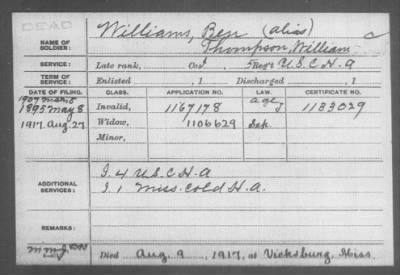 DEAD
Williams, Ben (alias)
NAME OF SOLDIER: Thompson, William
SERVICE: Late rank, Co. I, 5 Reg't U.S.C.H.A
TERM OF SERVICE: Enlisted , 1 Discharged , 1
DATE OF FILING. CLASS. APPLICATION NO. LAW. CERTIFICATE NO.
1907 Mar
1895 May 8 Invalid, 1167178 age 1183029
1917. Aug. 27 Widow, 1106629
Minor,
ADDITIONAL SERVICES: I. 4 U.S.C.H.A
I. 1 Miss. Cold H.A.
REMARKS:
Died Aug. 9, 1917, at Vicksburg, Miss.